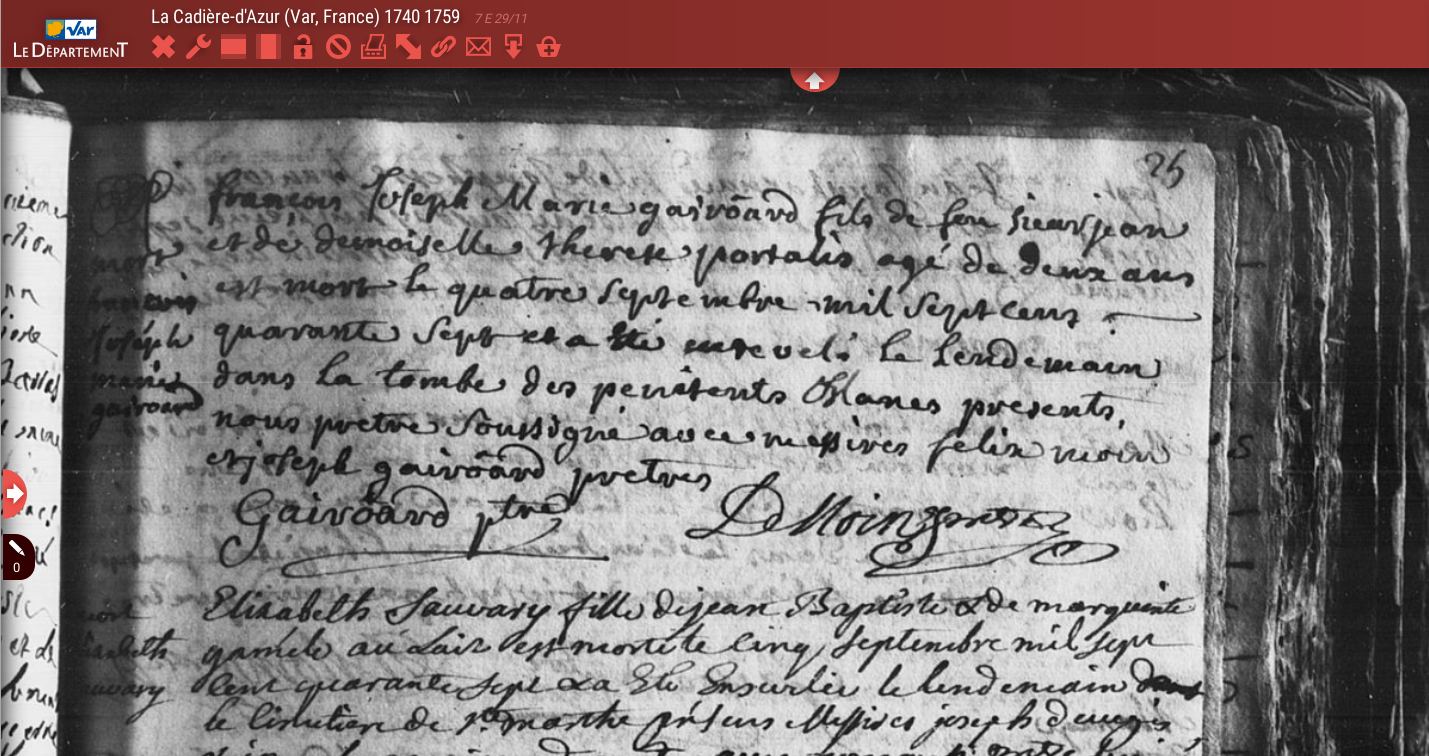 La Cadière-d'Azur (Var, France) 1740 1759 7 E 29/11
VAR
LE DÉPARTEMENT
25
françois Joseph Marie gairoard fils de feu sieur jean
et de demoiselle therese portalis agé de deux ans
est mort le quatre septembre mil sept cens
quarante sept et a été enseveli le lendemain
dans la tombe des penitents blancs presents,
nous pretre soussigné avec messires felix moin
et joseph gairoard pretres
mort
françois
Joseph
marie
gairoard
Gairoard ptre
D Moin pretre
Elizabeth Sauvary fille de jean Baptiste & de marguerite
gamele au Lair est morte le cinq septembre mil sept
cent quarante sept & a Eté Ensevelie le lendemain dans
le cimetiere de Ste marthe présens Messires joseph
mort
Elizabeth
Sauvary
0